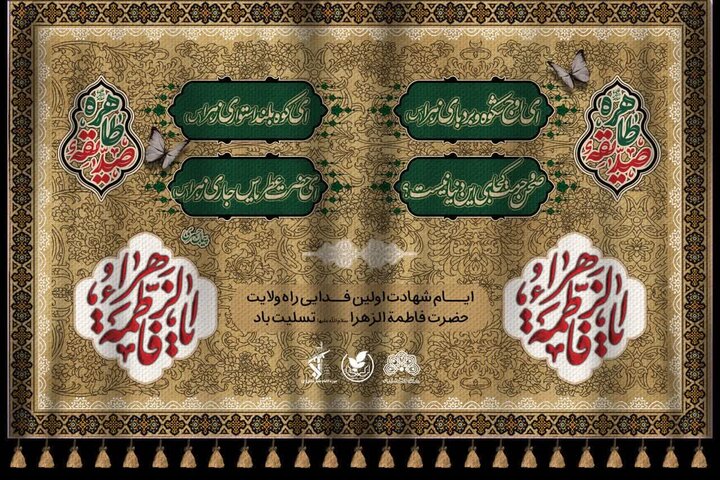 صدیقه طاهره
ای اوج شکوه و بردباری زهرا(س)
ای کوه بلند استواری زهرا(س)
صدیقه طاهره
صحن حرمت کجای این دنیا نیست؟
ای حضرت عطر یاس جاری زهرا(س)
یا فاطمة الزهراء
یا فاطمة الزهراء
ایام شهادت اولین فدایی راه ولایت
حضرت فاطمة الزهرا سلام الله علیها تسلیت باد